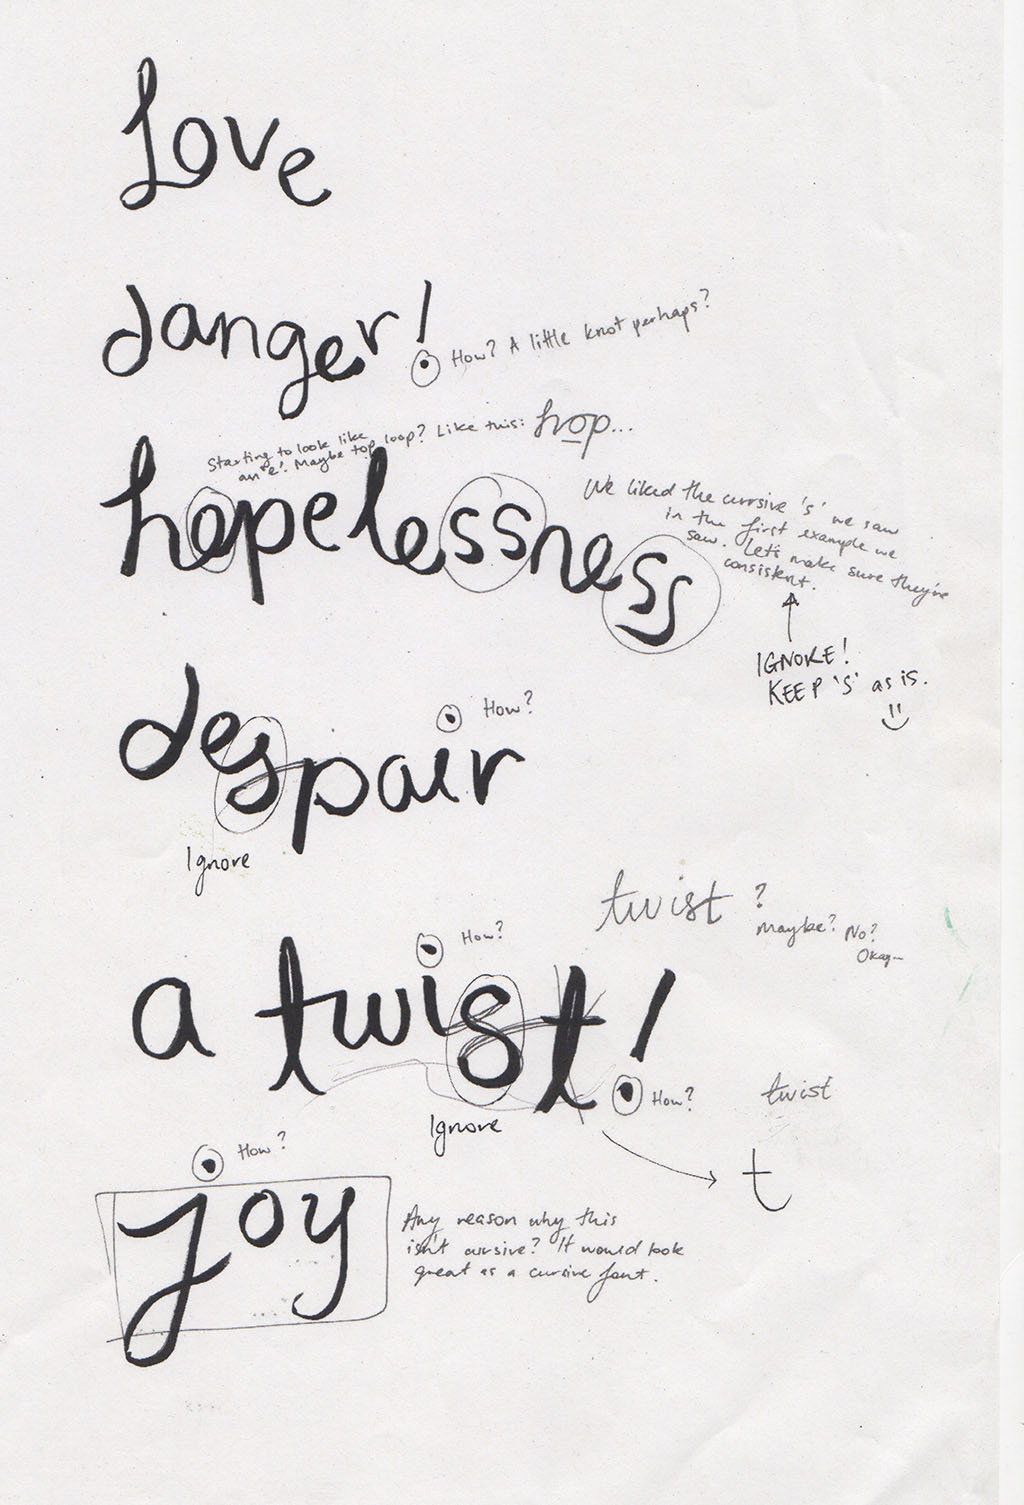 Love
danger!
How? A little knot perhaps?
Starting to look like
an 'e'. Maybe top loop? Like this: hop...
hopelessness
We liked the cursive 's' we saw
in the first example we
saw. Let's make sure they're
consistent.
IGNORE!
KEEP 'S' as is.
How?
despair
Ignore
twist ?
Maybe? No?
Okay-
How?
a twist!
How?
twist
Ignore
t
How?
joy
Any reason why this
isn't cursive? It would look
great as a cursive font.